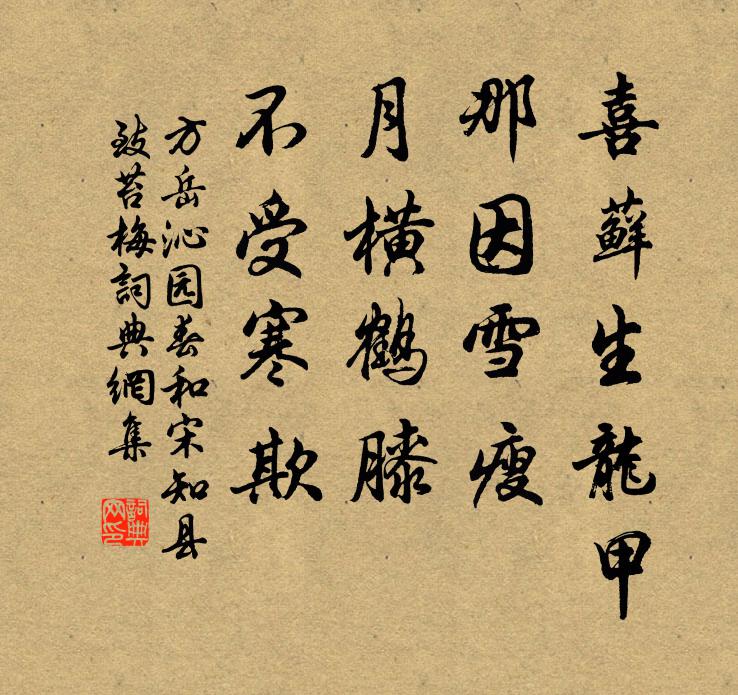 喜蘚生龍甲
那因雪瘦
月橫鶴膝
不受寒欺
方岳沁园春和宋知县
致苔梅詞典網集
詞典网印